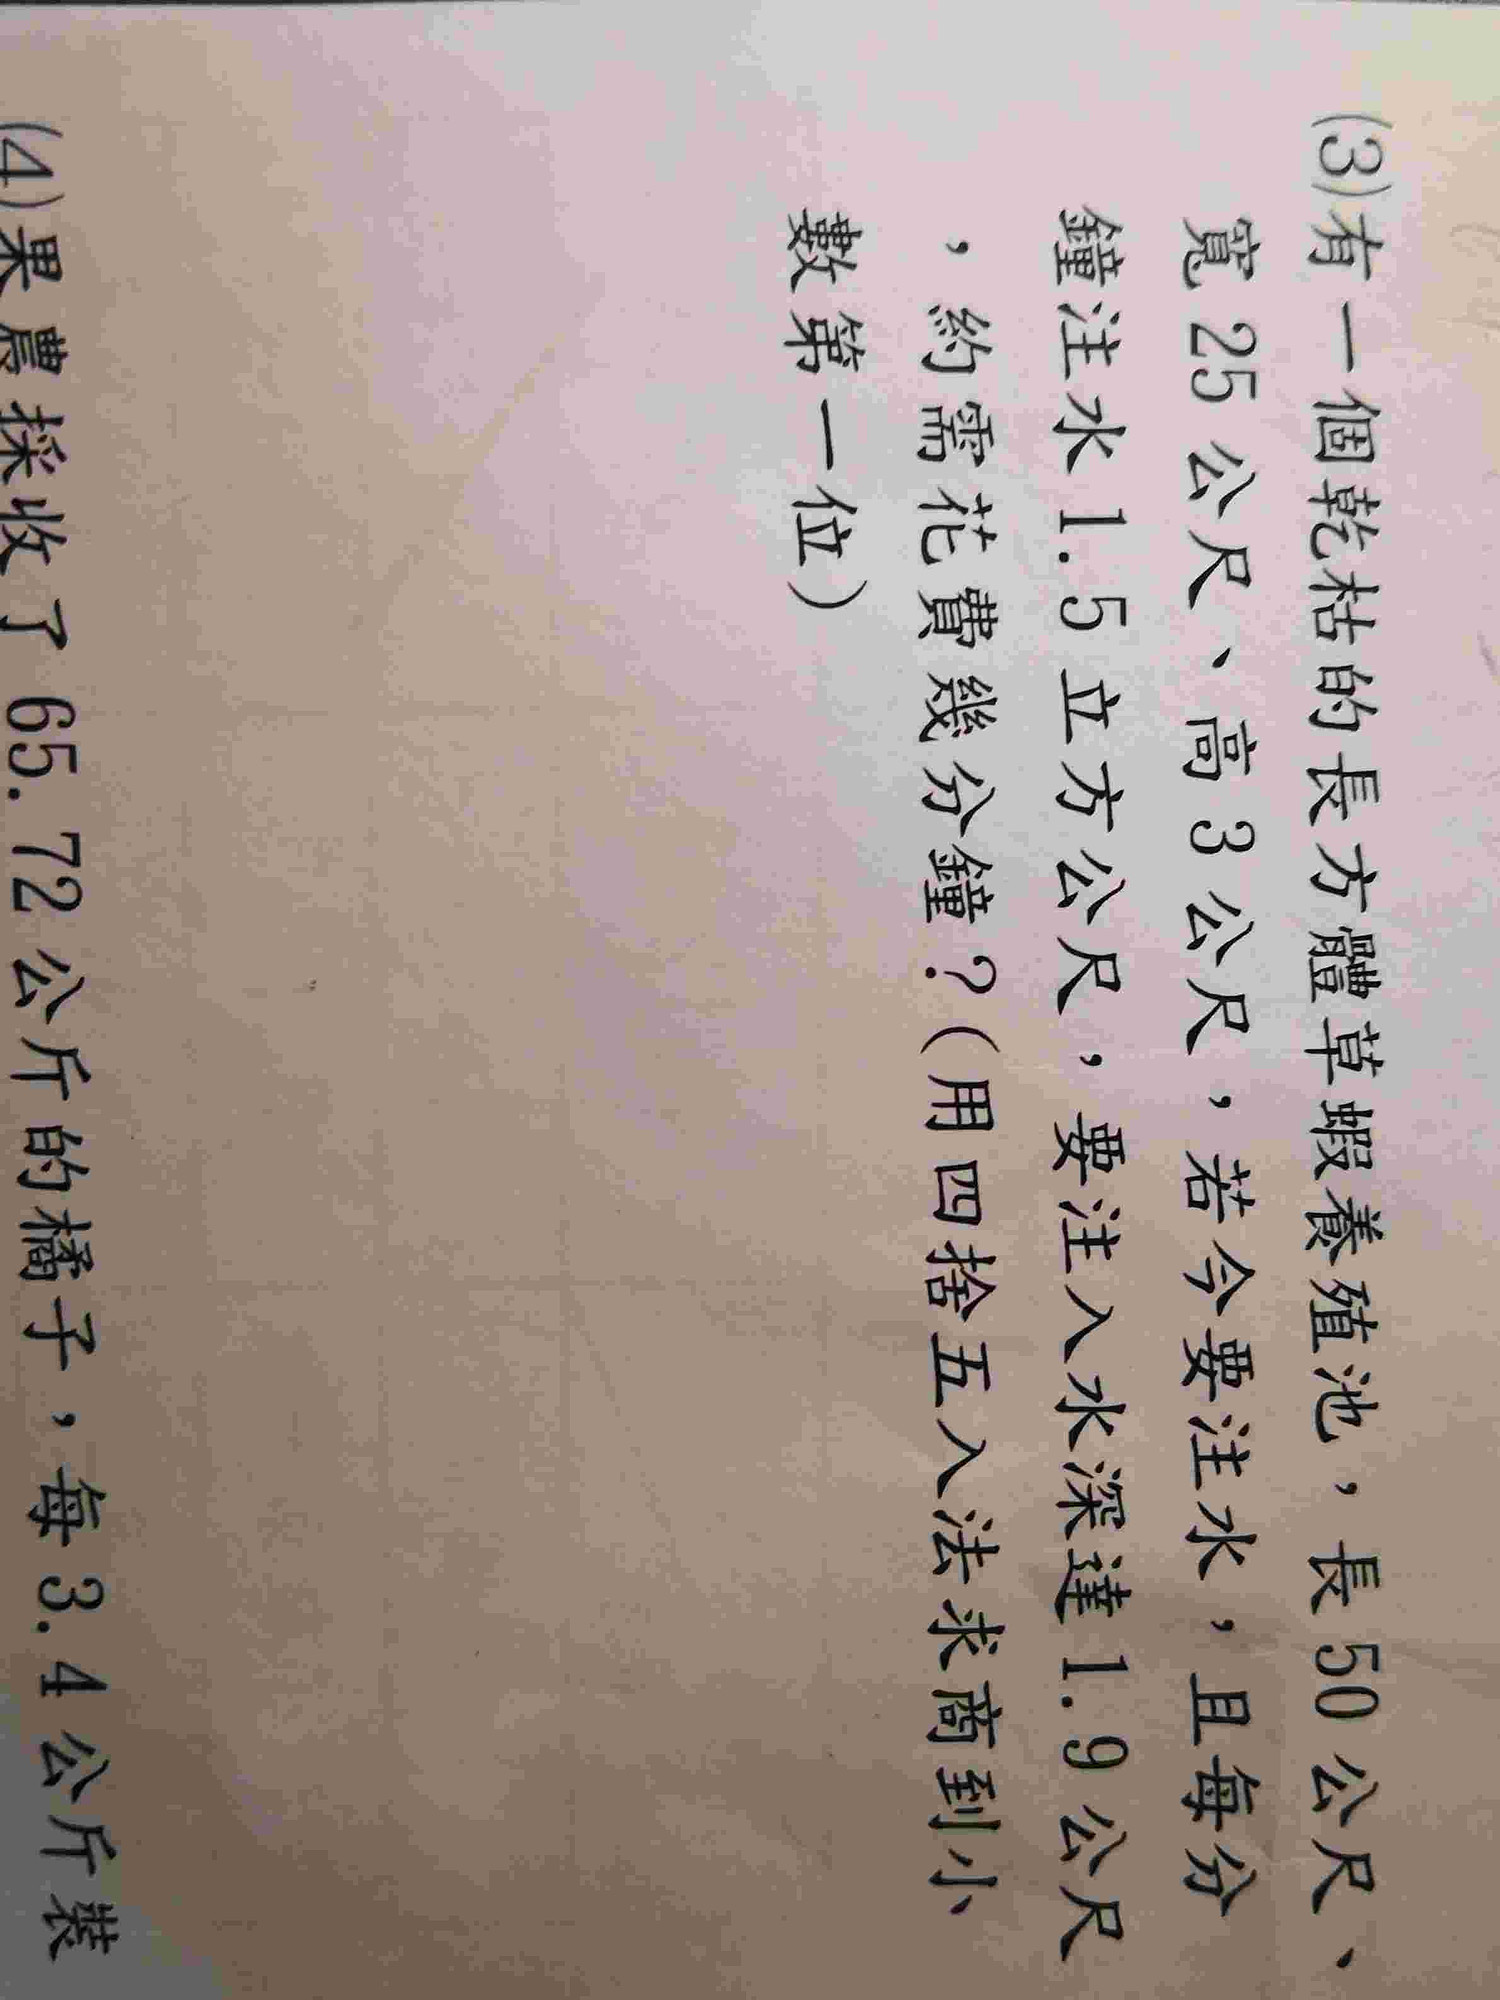 (3)有一個乾枯的長方體草蝦養殖池，長50公尺、
寬25公尺、高3公尺，若今要注水，且每分
鐘注水1.5立方公尺，要注入水深達1.9公尺
，約需花費幾分鐘？(用四捨五入法求商到小
數第一位)
(4)果農採收了65.72公斤的橘子，每3.4公斤裝